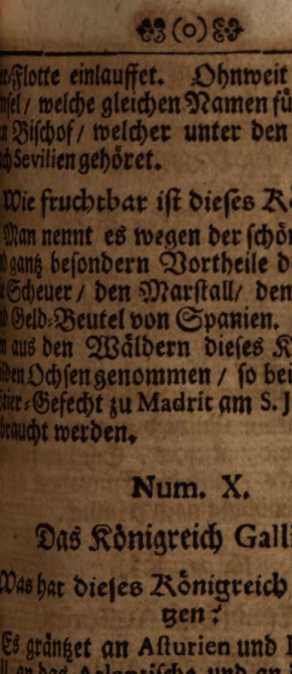 (o)
Flotte einlauffet. Ohnweit
welche gleichen Namen fü
Bischof / welcher unter den
Sevilien gehöret.
Wie fruchtbar ist dieses Kö
Man nennt es wegen der schön
gantz besondern Vortheile d
Scheuer / den Marstall/ den
Geld-Beutel von Spanien.
aus den Wäldern dieses K
Ochsen genommen / so bei
Gefecht zu Madrit am S. J
braucht werden.
Num. X.
Das Königreich Galli
Was hat dieses Königreich
tzen?
Es gräntzet an Asturien und